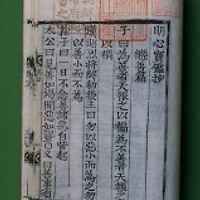 明心寶鑑抄
繼善篇
子曰爲善者天報之以福爲不善者天報之
以禍
漢昭烈將終勅後主曰勿以惡小而爲之勿
以善小而不爲
莊子曰一日不念善諸惡皆自起
太公曰見善如渴聞惡如聾又曰善事須